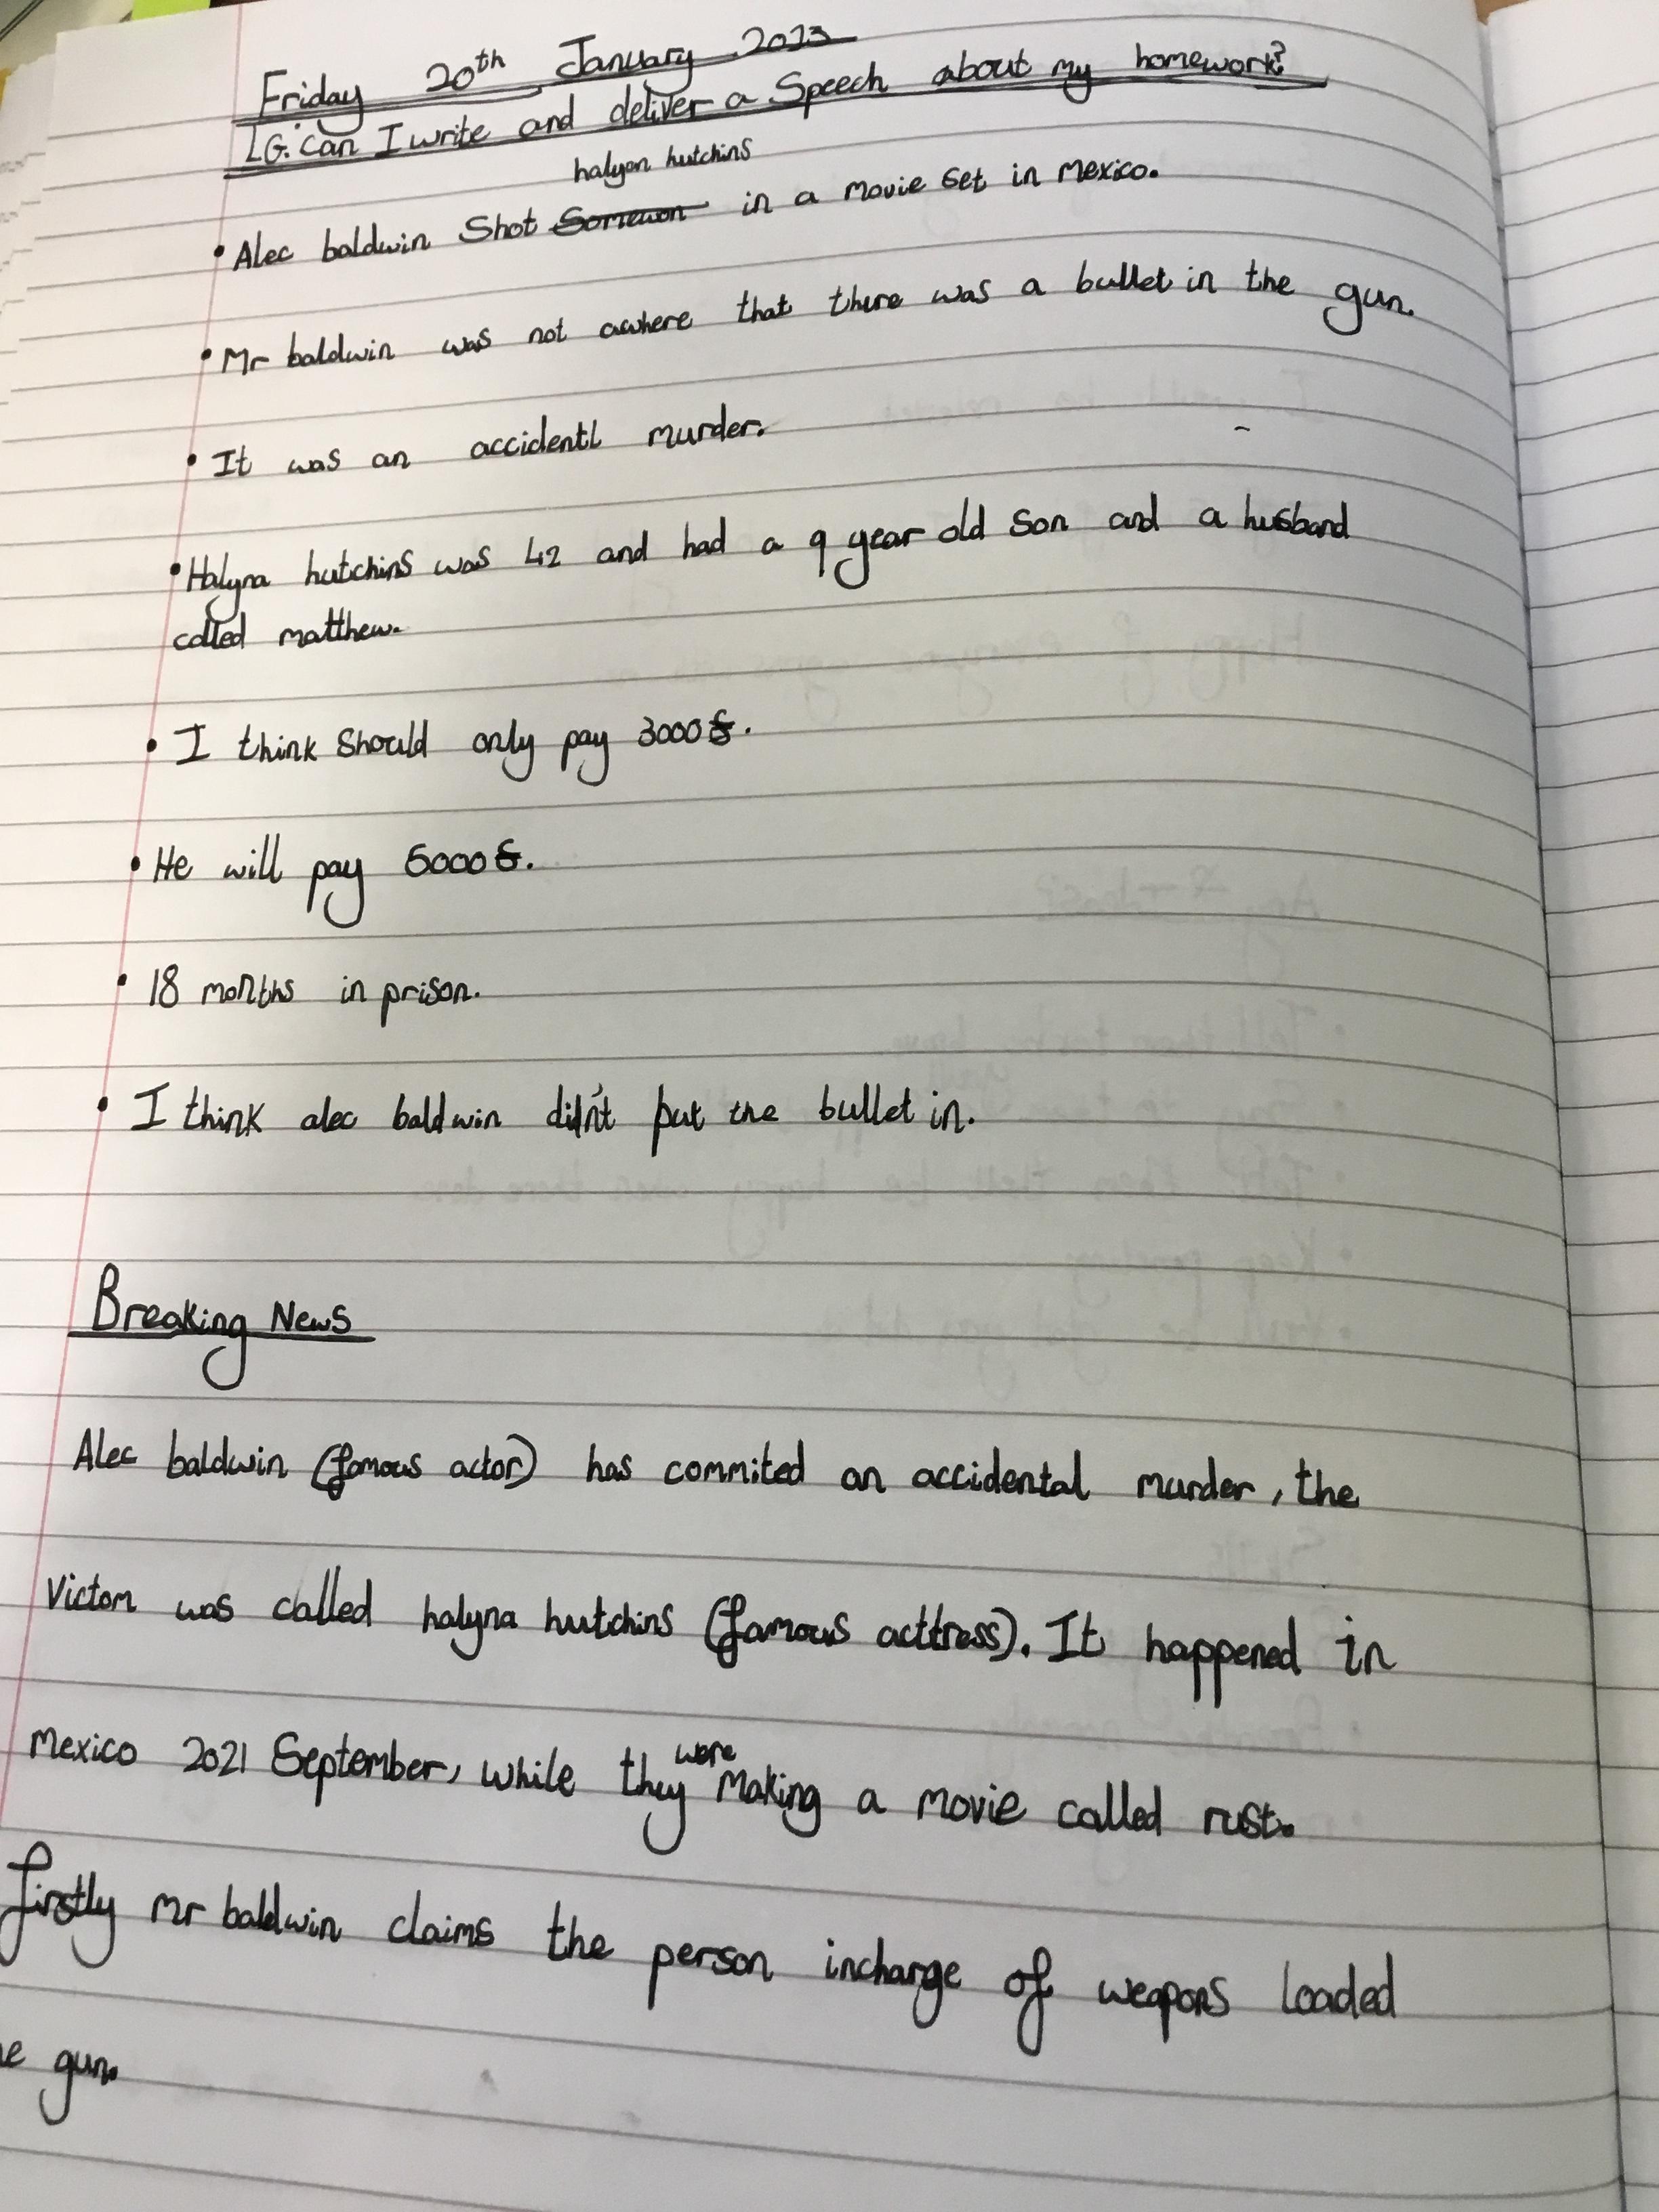 Friday 20th January 2023
LG: Can I write and deliver a Speech about my homework?
halyon hutchins
• Alec baldwin Shot Somewon in a movie set in mexico.
• Mr baldwin was not awhere that there was a bullet in the gun.
• It was an accidentl murder.
• Halyna hutchins was 42 and had a 9 year old son and a husband
called matthew.
• I think should only pay 3000$.
• He will pay 5000$.
• 18 months in prison.
• I think alec baldwin didn't put the bullet in.
Breaking News
Alec baldwin (famous actor) has commited an accidental murder, the
victom was called halyna hutchins (famous acttress). It happened in
mexico 2021 September, while they were making a movie called rust.
firstly mr baldwin claims the person incharge of weapons loaded
he gun.